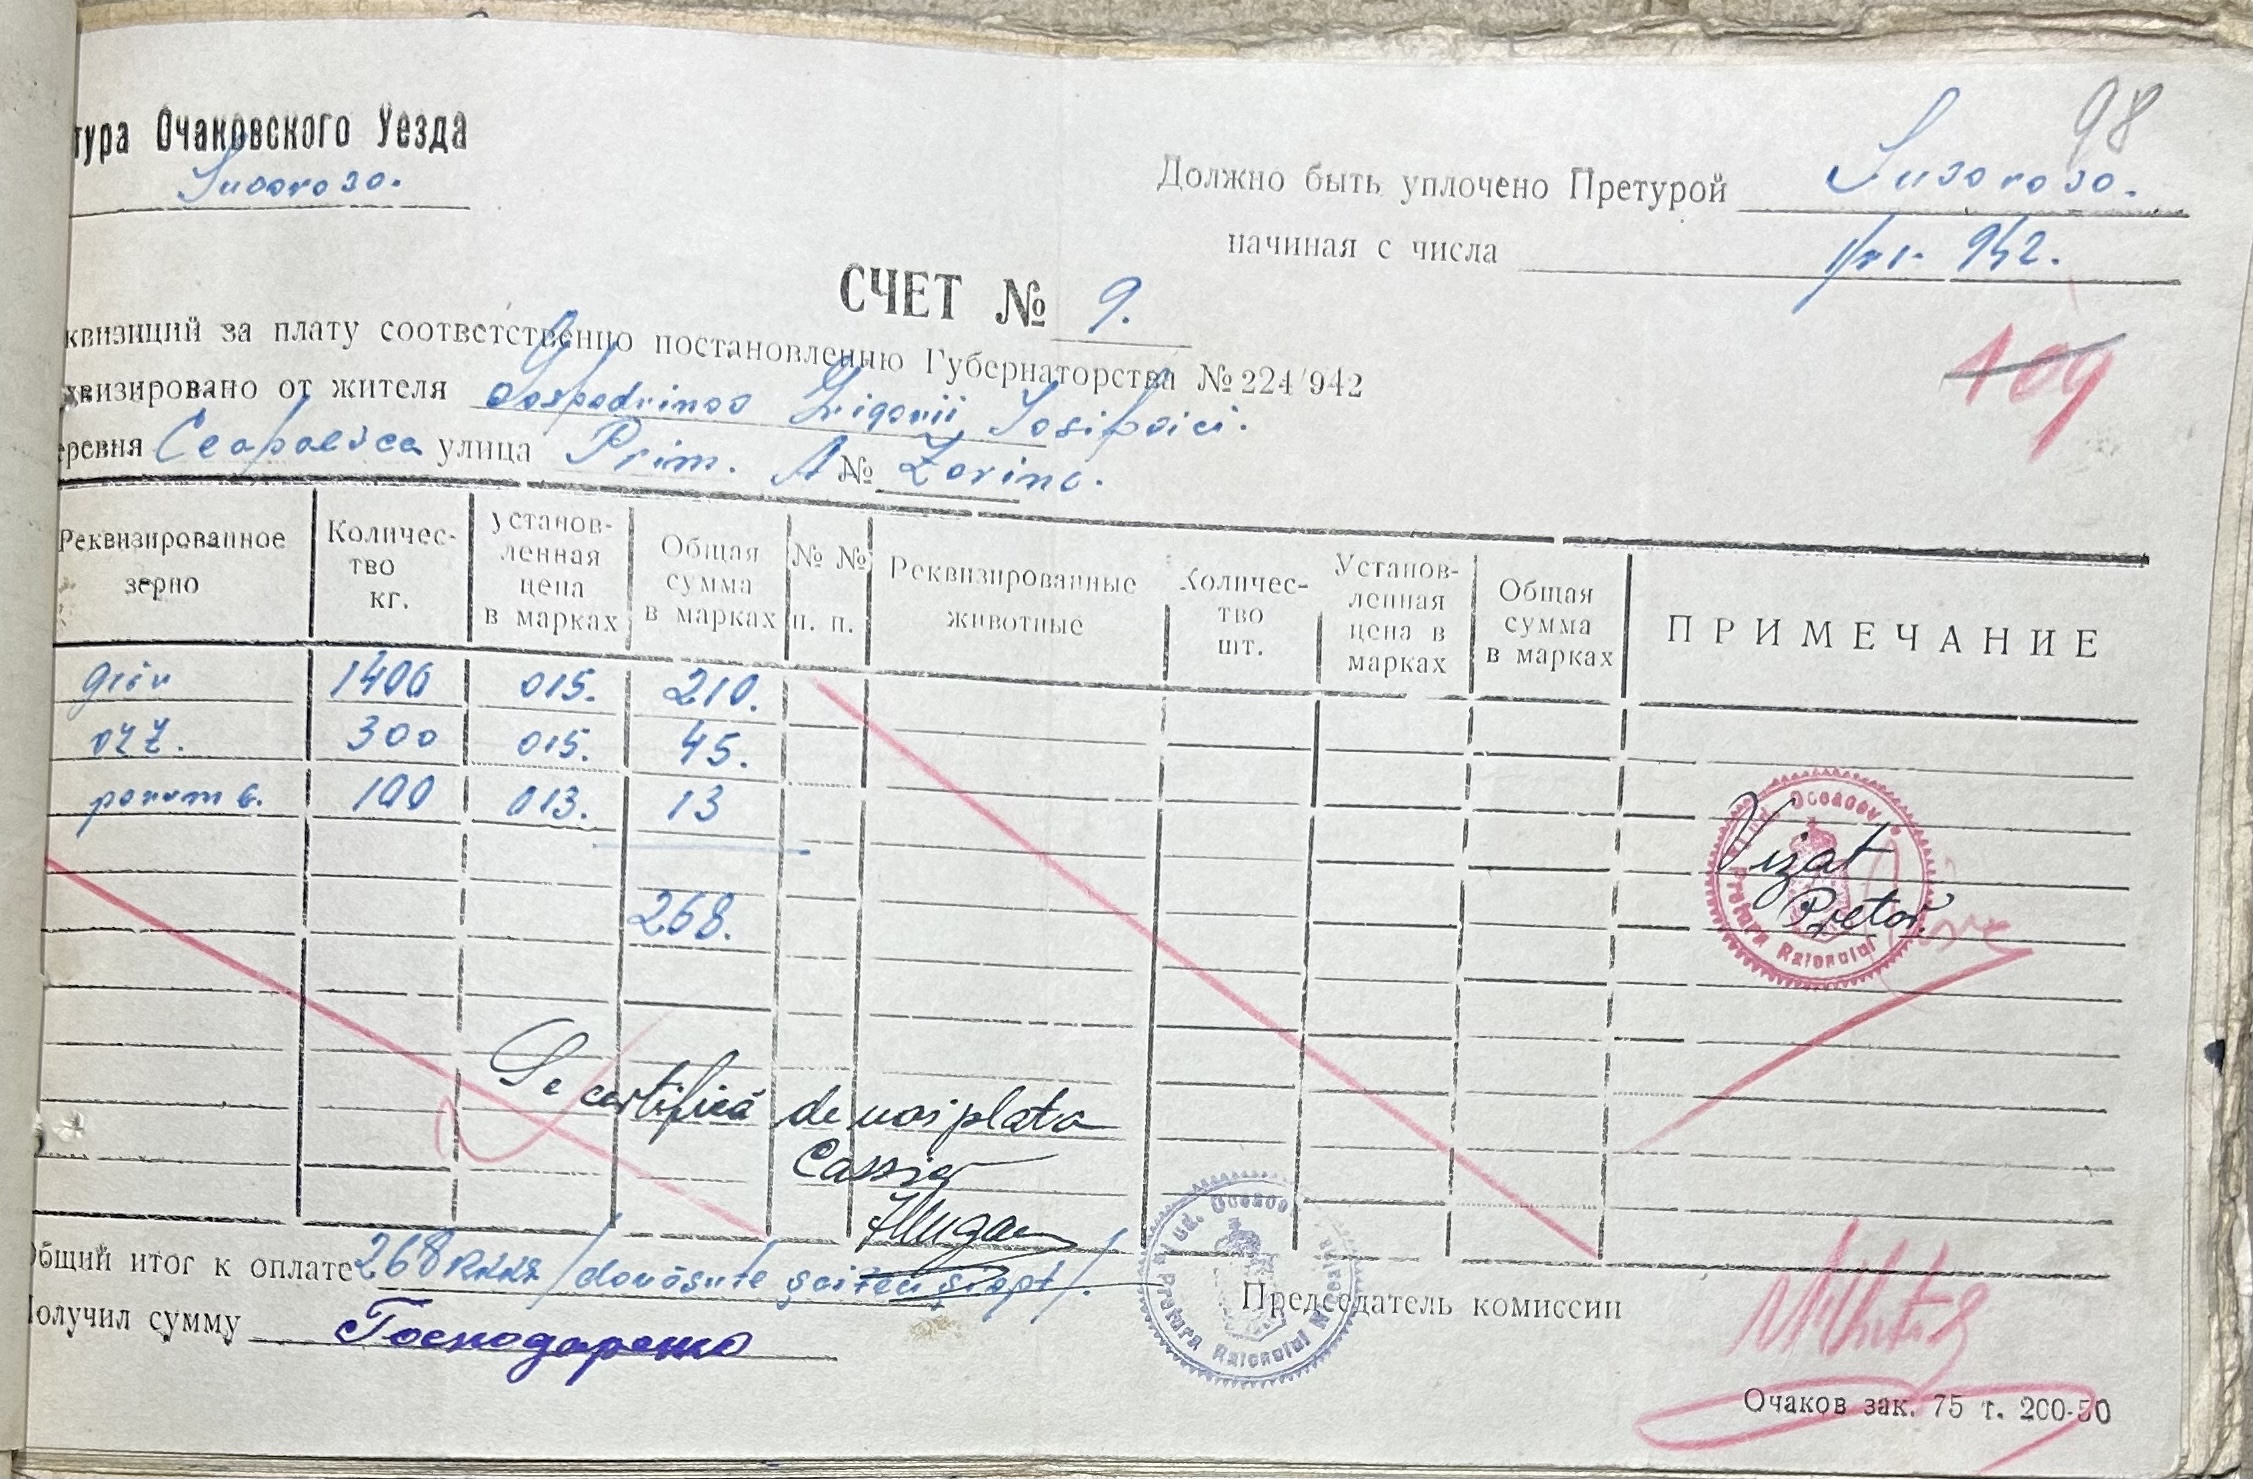 98
тура Очаковского Уезда
Suvorovo.
Должно быть уплочено Претурой Suvorovo.
начиная с числа 942.
СЧЕТ № 9.
109
квизиций за плату соответственно постановлению Губернаторства № 224/942
квизировано от жителя Gospodrinco Grigorii Iosifovici.
еревня Ceapaevca улица Prim. A № Zorinc.
Реквизированное зерно
Количество кг.
установленная цена в марках
Общая сумма в марках
№ № п. п.
Реквизированные животные
Количество шт.
Установленная цена в марках
Общая сумма в марках
ПРИМЕЧАНИЕ
grâu 1400 015. 210.
orz. 300 015. 45.
porumb. 100 013. 13
268.
Vizat
Pretor.
Pretura Raionului
Se certifică de noi plata
Cassier
Общий итог к оплате 268 RKKS /douăsute șaizeci și opt/.
Pretura Raionului ud. Oceacov
Председатель комиссии
Получил сумму Господаренко
Очаков зак. 75 т. 200-50